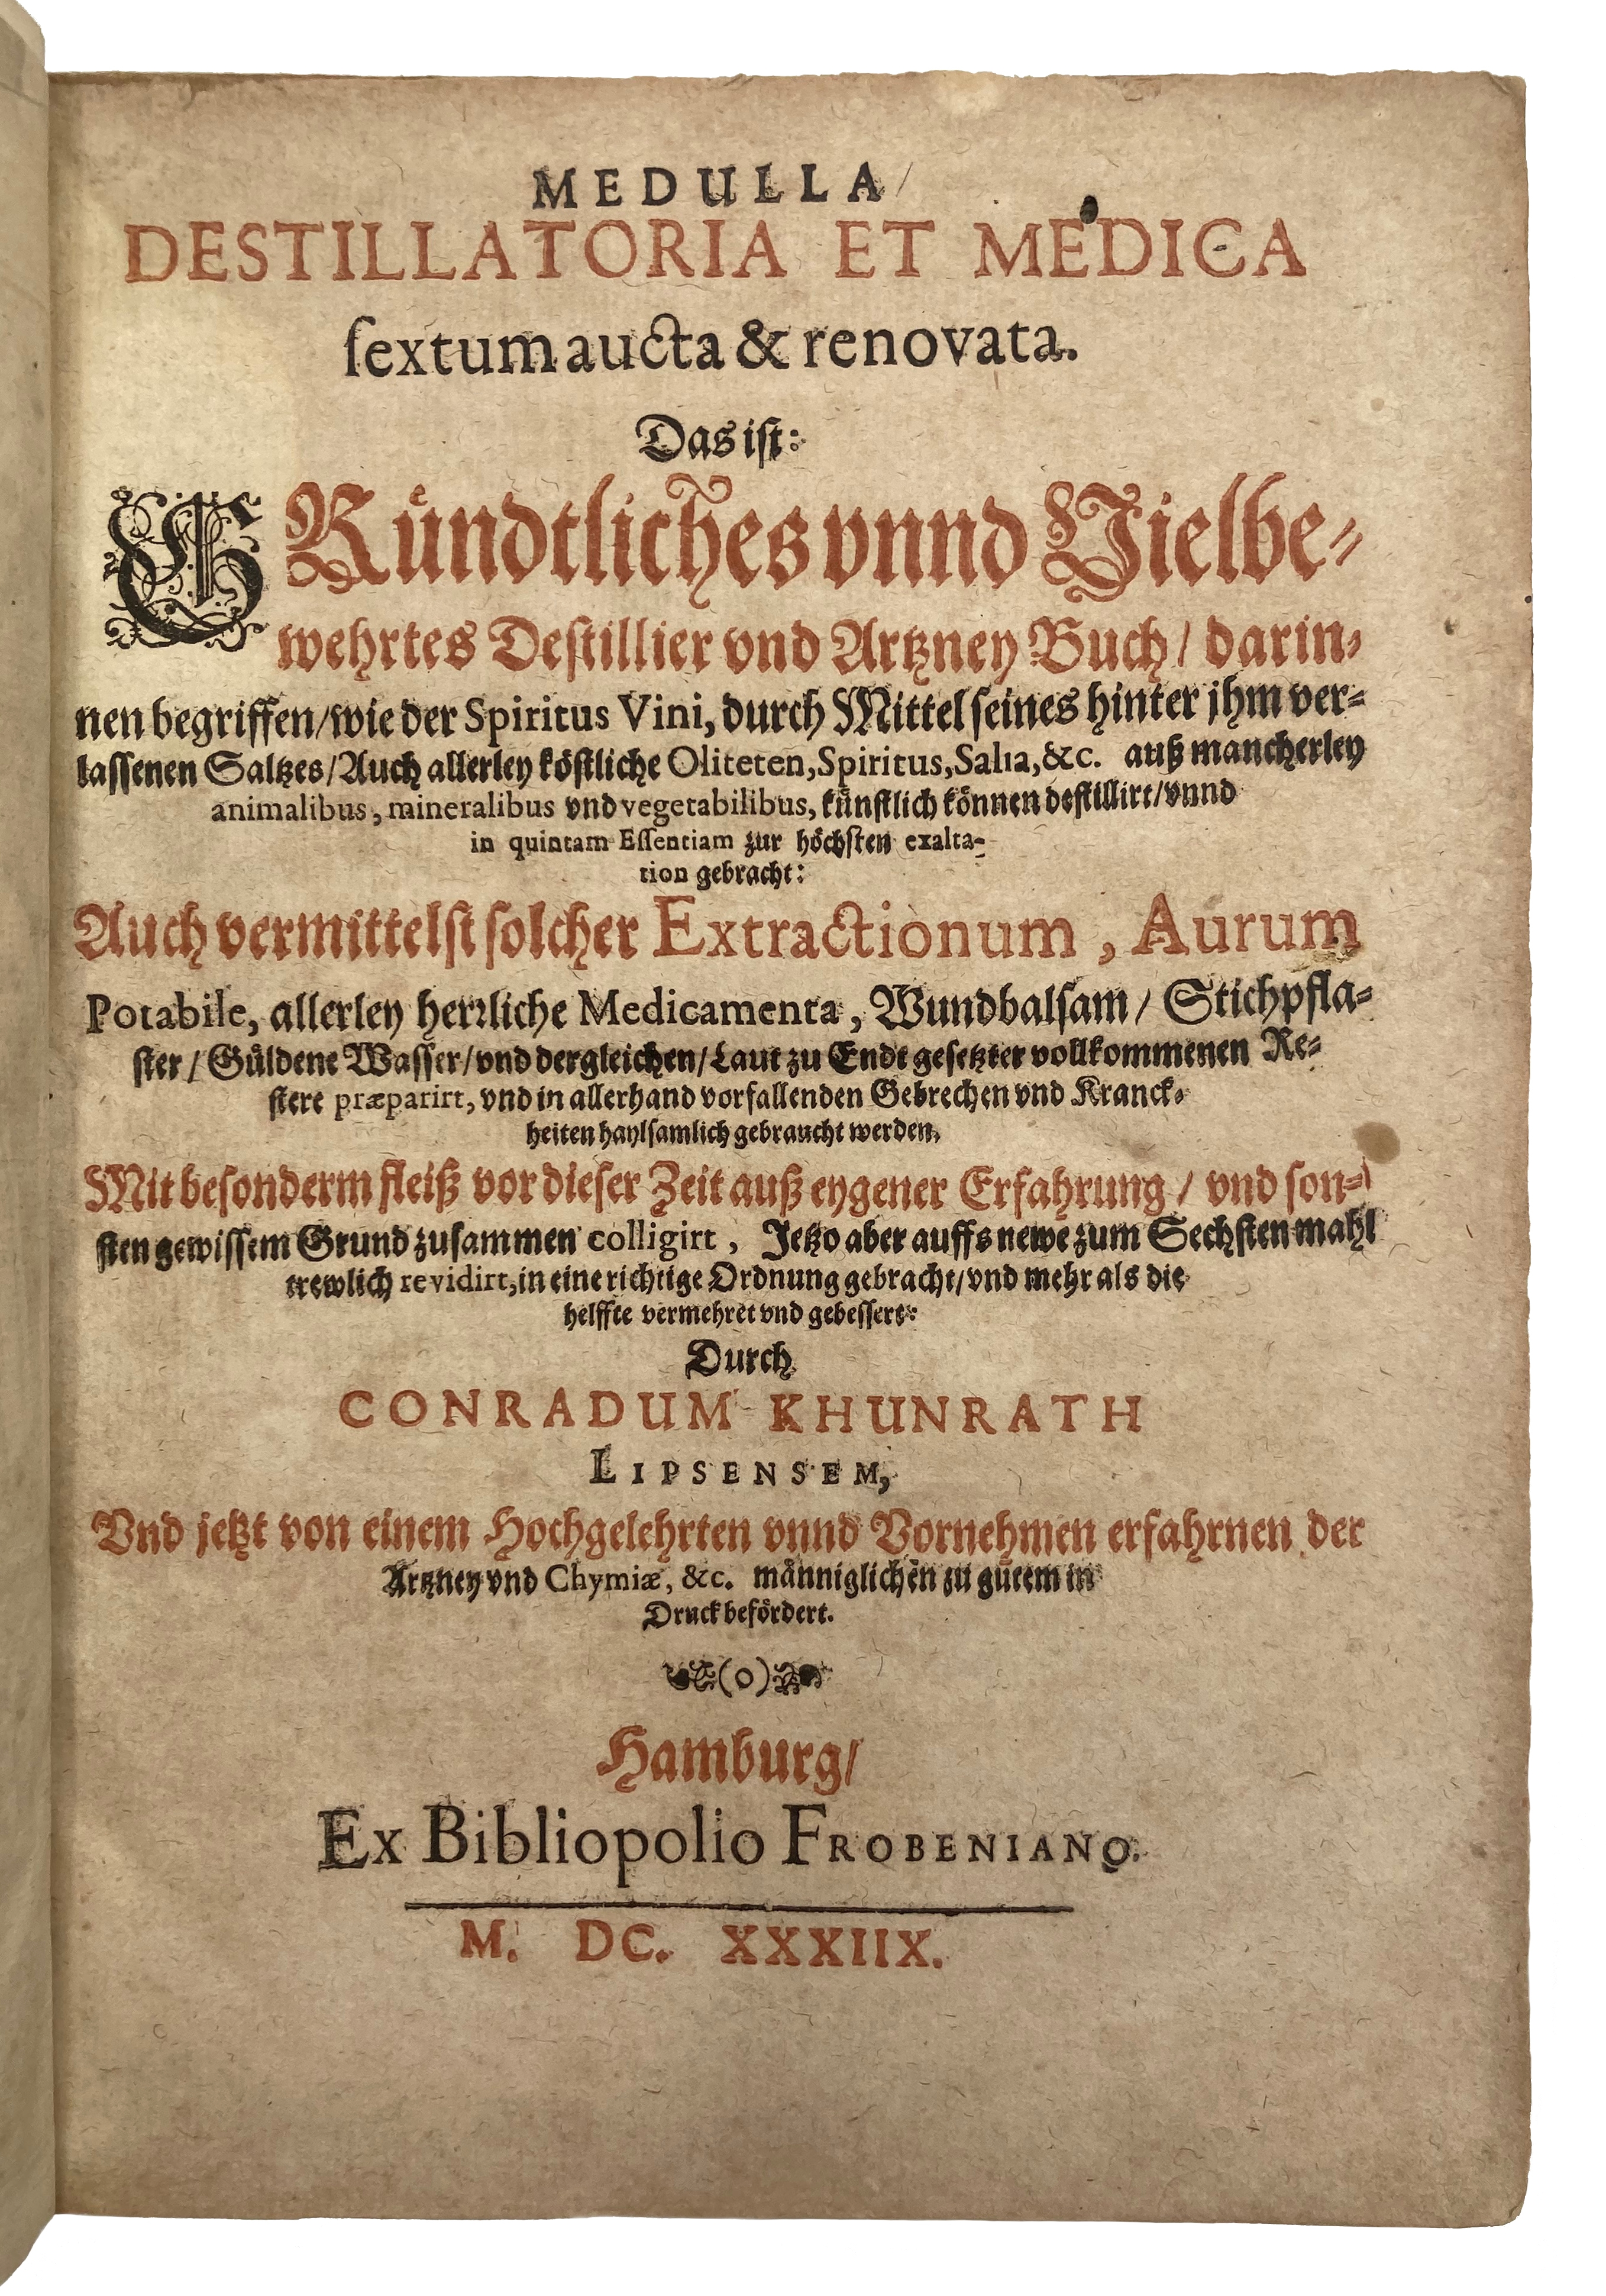 MEDULLA/
DESTILLATORIA ET MEDICA
ſextum aucta & renovata.
Das iſt:
GRuͤndtliches vnnd Vielbe-
wehrtes Deſtillier vnd Artzney Buch/ darin-
nen begriffen/wie der Spiritus Vini, durch Mittel ſeines hinter jhm ver-
laſſenen Saltzes/Auch allerley koͤſtliche Oliteten, Spiritus, Salia, &c. auß mancherley
animalibus, mineralibus vnd vegetabilibus, kuͤnſtlich koͤnnen deſtillirt/vnnd
in quintam Eſſentiam zur hoͤchſten exalta-
tion gebracht:
Auch vermittelſt ſolcher Extractionum, Aurum
Potabile, allerley herꝛliche Medicamenta, Wundbalſam/ Stichpfla-
ſter/ Guͤldene Waſſer/vnd dergleichen/Laut zu Ende geſetzter vollkommenen Re-
ſtere præparirt, vnd in allerhand vorfallenden Gebrechen vnd Kranck-
heiten haylſamlich gebraucht werden,
Mit beſonderm fleiß vor dieſer Zeit auß eygener Erfahrung/ vnd ſon-
ſten gewiſſem Grund zuſammen colligirt, Jetzo aber auffs newe zum Sechſten mahl
trewlich revidirt, in eine richtige Ordnung gebracht/vnd mehr als die
helffte vermehret vnd gebeſſert:
Durch
CONRADUM KHUNRATH
LIPSENSEM,
Vnd jetzt von einem Hochgelehrten vnnd Vornehmen erfahrnen der
Artzney vnd Chymiæ, &c. maͤnniglichen zu gutem in
Druck befoͤrdert.
(o)
Hamburg/
Ex Bibliopolio FROBENIANO.
M. DC. XXXIIX.